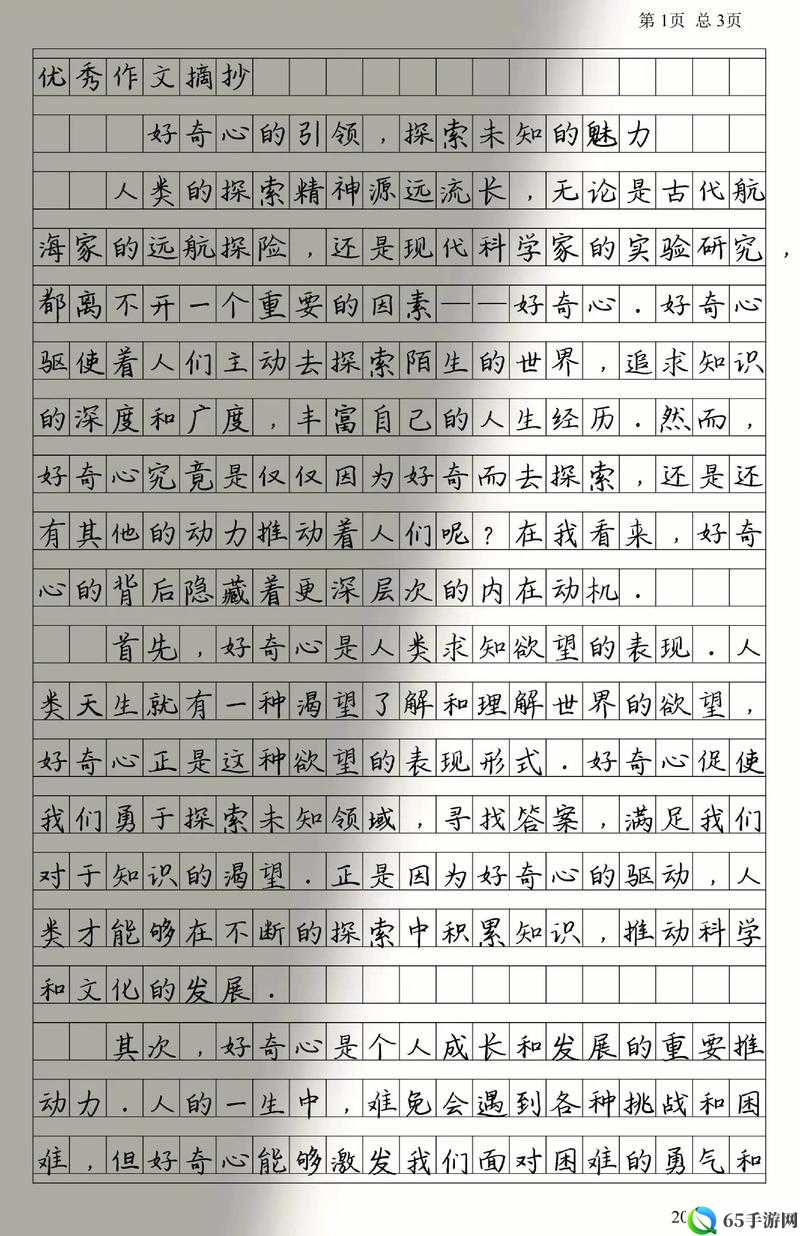 第 1页 总 3页
优秀作文摘抄
好奇心的引领，探索未知的魅力
人类的探索精神源远流长，无论是古代航
海家的远航探险，还是现代科学家的实验研究，
都离不开一个重要的因素——好奇心．好奇心
驱使着人们主动去探索陌生的世界，追求知识
的深度和广度，丰富自己的人生经历．然而，
好奇心究竟是仅仅因为好奇而去探索，还是还
有其他的动力推动着人们呢？在我看来，好奇
心的背后隐藏着更深层次的内在动机．
首先，好奇心是人类求知欲望的表现．人
类天生就有一种渴望了解和理解世界的欲望，
好奇心正是这种欲望的表现形式．好奇心促使
我们勇于探索未知领域，寻找答案，满足我们
对于知识的渴望．正是因为好奇心的驱动，人
类才能够在不断的探索中积累知识，推动科学
和文化的发展．
其次，好奇心是个人成长和发展的重要推
动力．人的一生中，难免会遇到各种挑战和困
难，但好奇心能够激发我们面对困难的勇气和
20
65手游网